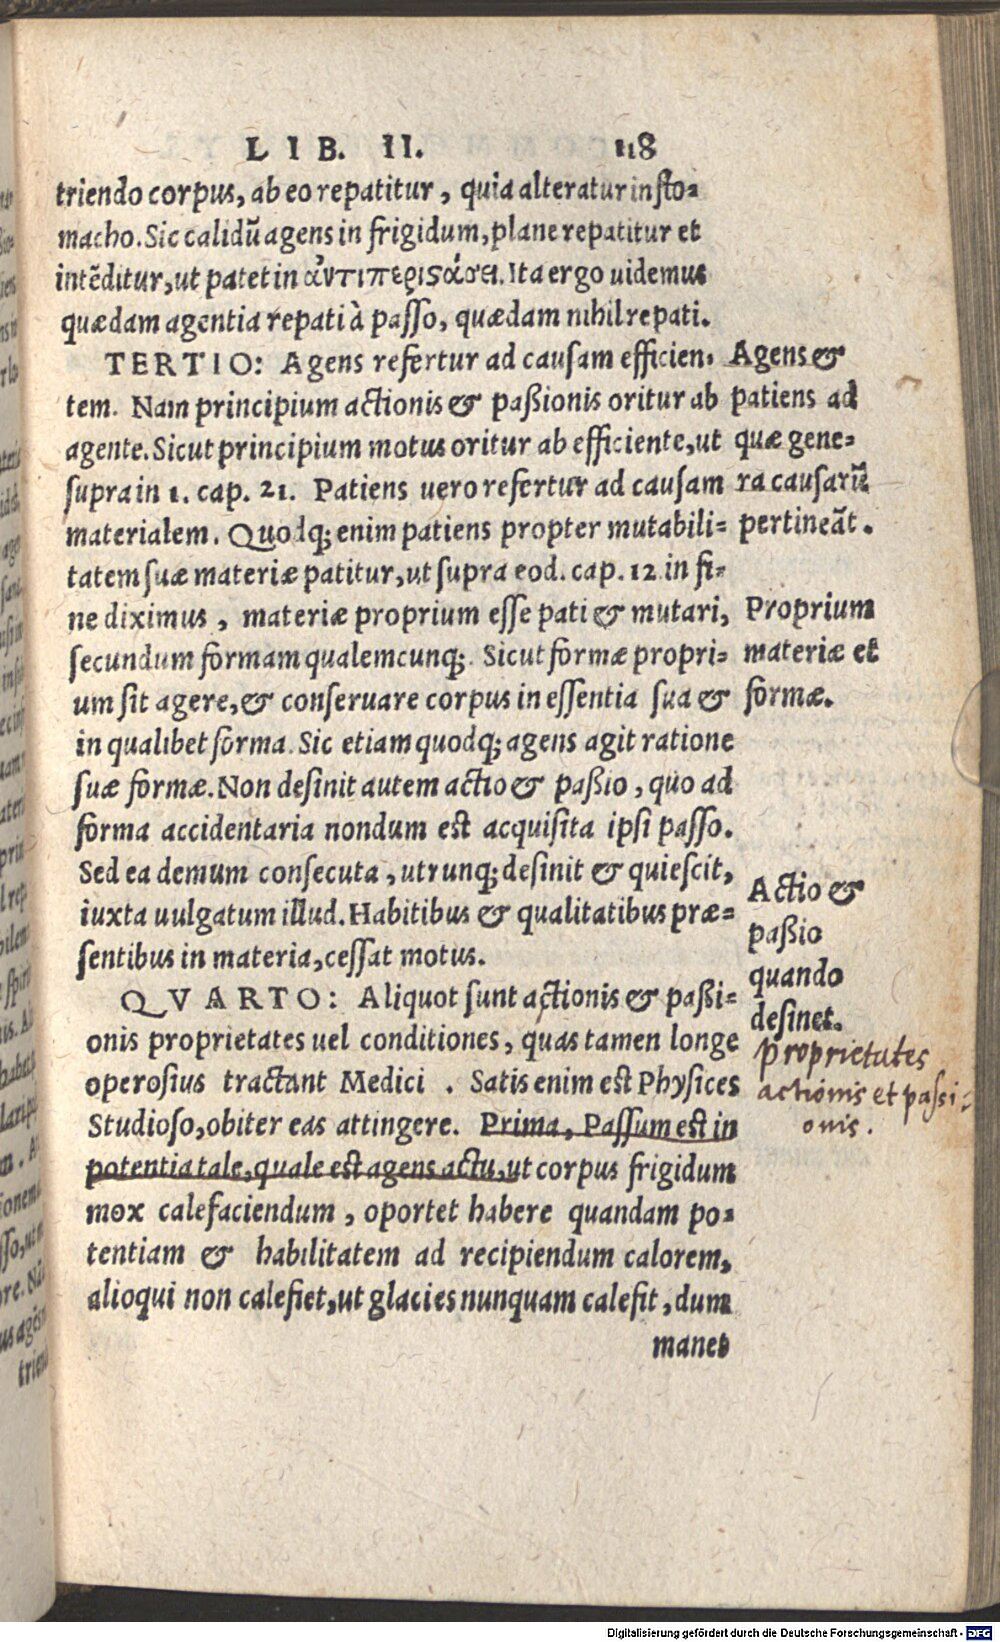 LIB. II. 118
triendo corpus, ab eo repatitur, quia alteratur in sto=
macho. Sic calidũ agens in frigidum, plane repatitur et
intẽditur, ut patet in ἀντιπεριϛάσει. Ita ergo uidemus
quædam agentia repati à passo, quædam nihil repati.
TERTIO: Agens refertur ad causam efficien=
tem. Nam principium actionis & paßionis oritur ab
agente. Sicut principium motus oritur ab efficiente, ut
supra in 1. cap. 21. Patiens uero refertur ad causam
materialem. Quodq; enim patiens propter mutabili=
tatem suæ materiæ patitur, ut supra eod. cap. 12 in fi=
ne diximus, materiæ proprium esse pati & mutari,
secundum formam qualemcunq;. Sicut formæ propri=
um sit agere, & conseruare corpus in essentia sua &
in qualibet forma. Sic etiam quodq; agens agit ratione
suæ formæ. Non desinit autem actio & paßio, quo ad
forma accidentaria nondum est acquisita ipsi passo.
Sed ea demum consecuta, utrunq; desinit & quiescit,
iuxta uulgatum illud. Habitibus & qualitatibus præ=
sentibus in materia, cessat motus.
QVARTO: Aliquot sunt actionis & paßi=
onis proprietates uel conditiones, quas tamen longe
operosius tractant Medici. Satis enim est Physices
Studioso, obiter eas attingere. Prima, Passum est in
potentia tale, quale est agens actu, ut corpus frigidum
mox calefaciendum, oportet habere quandam po=
tentiam & habilitatem ad recipiendum calorem,
alioqui non calefiet, ut glacies nunquam calefit, dum
manet
Agens &
patiens ad
quæ gene=
ra causarũ
pertineãt.
Proprium
materiæ et
formæ.
Actio &
paßio
quando
desinet.
proprietates
actionis et passi=
onis.
Digitalisierung gefördert durch die Deutsche Forschungsgemeinschaft - DFG